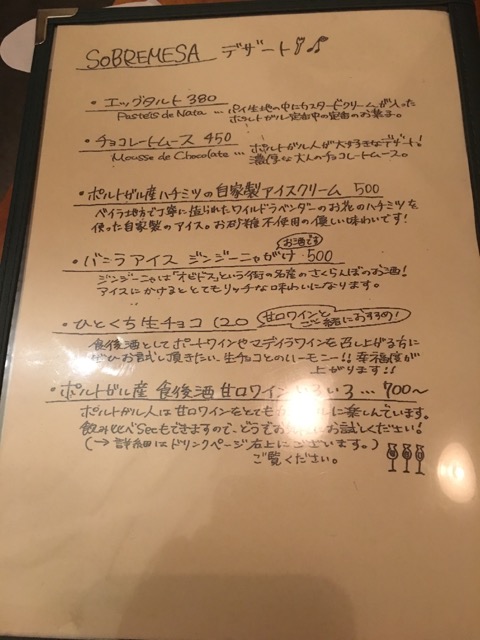 SOBREMESA デザート
・エッグタルト 380
Pasteis de Nata … パイ生地の中にカスタードクリームが入った
ポルトガル定番中の定番のお菓子。
・チョコレートムース 450
Mousse de Chocolate … ポルトガル人が大好きなデザート!
濃厚な大人のチョコレートムース。
・ポルトガル産ハチミツの自家製アイスクリーム 500
ベイラ地方で丁寧に造られたワイルドラベンダーのお花のハチミツを
使った自家製のアイス。お砂糖不使用の優しい味わいです!
お酒です
・バニラアイス ジンジーニャがけ 500
ジンジーニャは「オビドス」という街の名産のさくらんぼのお酒!
アイスにかけるととてもリッチな味わいになります。
・ひとくち生チョコ 120 甘口ワインと
ご一緒におすすめ!
食後酒としてポートワインやマデイラワインを召し上がる方に
ぜひお試し頂きたい、生チョコとのハーモニー!! 幸福度が
上がります!!
・ポルトガル産 食後酒 甘口ワイン いろいろ … 700〜
ポルトガル人は甘口ワインをとても に楽しんでいます。
飲み比べSetもできますので、どうぞ にお試しください!
(→ 詳細はドリンクページ右上にございます。)
ご覧ください。